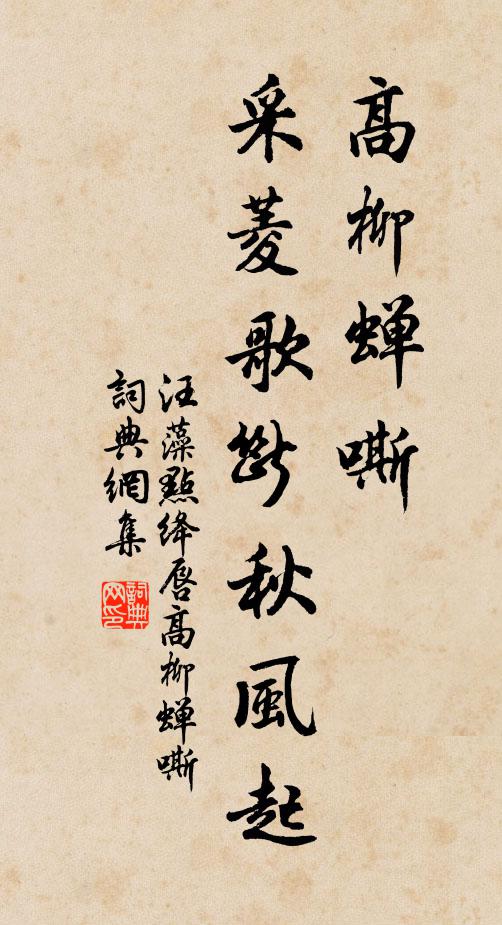 高柳蝉嘶
采菱歌斷秋風起
汪藻點绛唇高柳蝉嘶
詞典網集
詞典网印